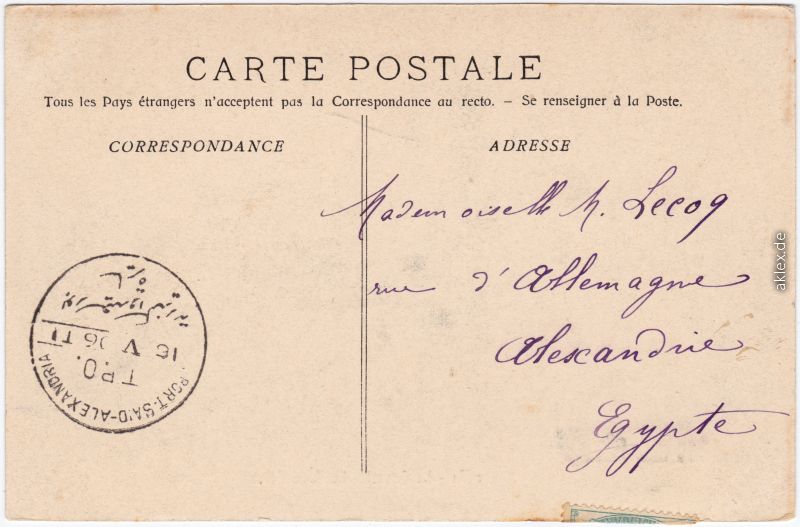 CARTE POSTALE
Tous les Pays étrangers n'acceptent pas la Correspondance au recto. – Se renseigner à la Poste.
CORRESPONDANCE
ADRESSE
Mademoiselle M. Lecoq
rue d'Allemagne
Alexandrie
Egypte
PORT-SAID-ALEXANDRIA
T.P.O.
16 V 06 T1
aklex.de